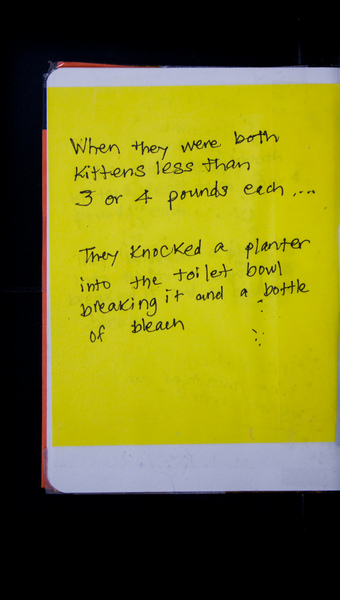 When they were both
Kittens less than
3 or 4 pounds each ....
They Knocked a planter
into the toilet bowl
breaking it and a bottle
of bleach